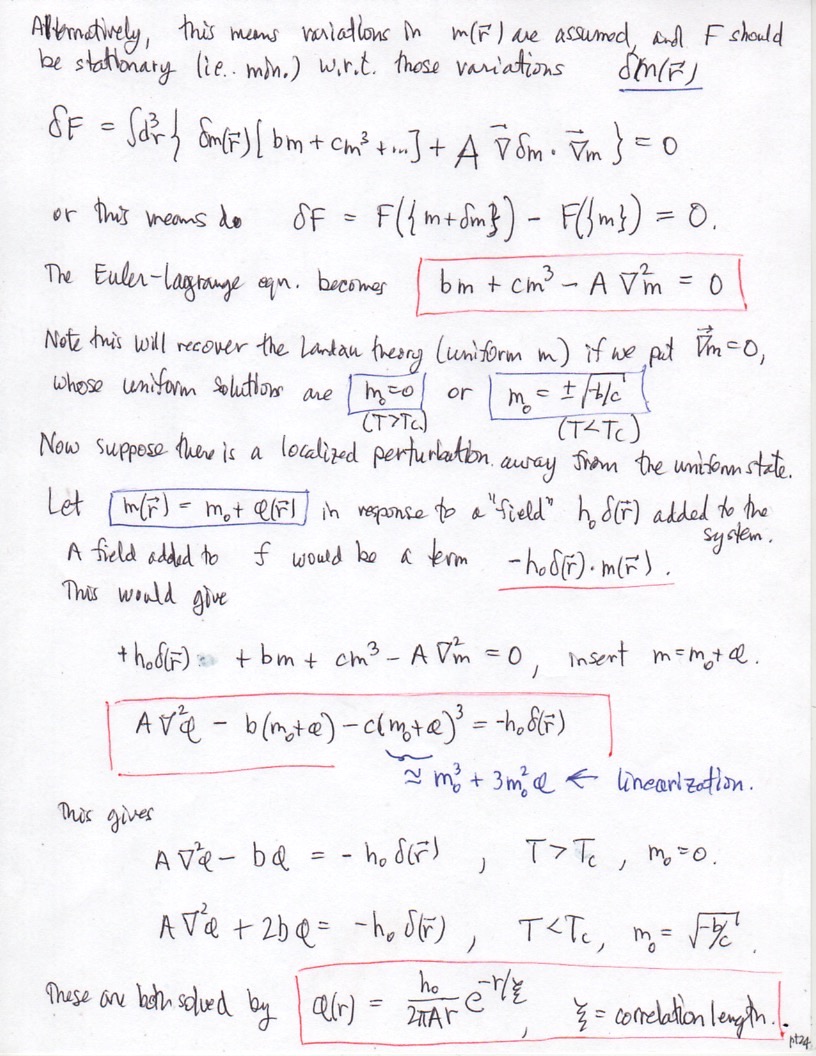 Alternatively, this means variations in m(r⃗) are assumed, and F should
be stationary (i.e.. min.) w.r.t. those variations δm(r⃗)
δF = ∫d³r { δm(r⃗) [ bm + cm³ + ... ] + A ∇⃗δm · ∇⃗m } = 0
or this means do δF = F({m+δm}) − F({m}) = 0.
The Euler-Lagrange eqn. becomes bm + cm³ − A ∇²m = 0
Note this will recover the Landau theory (uniform m) if we put ∇⃗m = 0,
whose uniform solutions are m₀=0 or m₀ = ±√-b/c
(T>Tc) (T<Tc)
Now suppose there is a localized perturbation. away from the uniform state.
Let m(r⃗) = m₀ + φ(r⃗) in response to a "field" h₀ δ(r⃗) added to the
system.
A field added to f would be a term −h₀δ(r⃗)·m(r⃗).
This would give
+h₀δ(r⃗) + bm + cm³ − A ∇²m = 0, insert m=m₀+φ.
A∇²φ − b(m₀+φ) − c(m₀+φ)³ = −h₀δ(r⃗)
≈ m₀³ + 3m₀²φ ← linearization.
This gives
A∇²φ − bφ = − h₀ δ(r⃗) , T>Tc , m₀=0.
A∇²φ + 2bφ = −h₀ δ(r⃗) , T<Tc, m₀= √-b/c .
These are both solved by φ(r) = h₀/2πAr e^−r/ξ , ξ = correlation length.
pt24